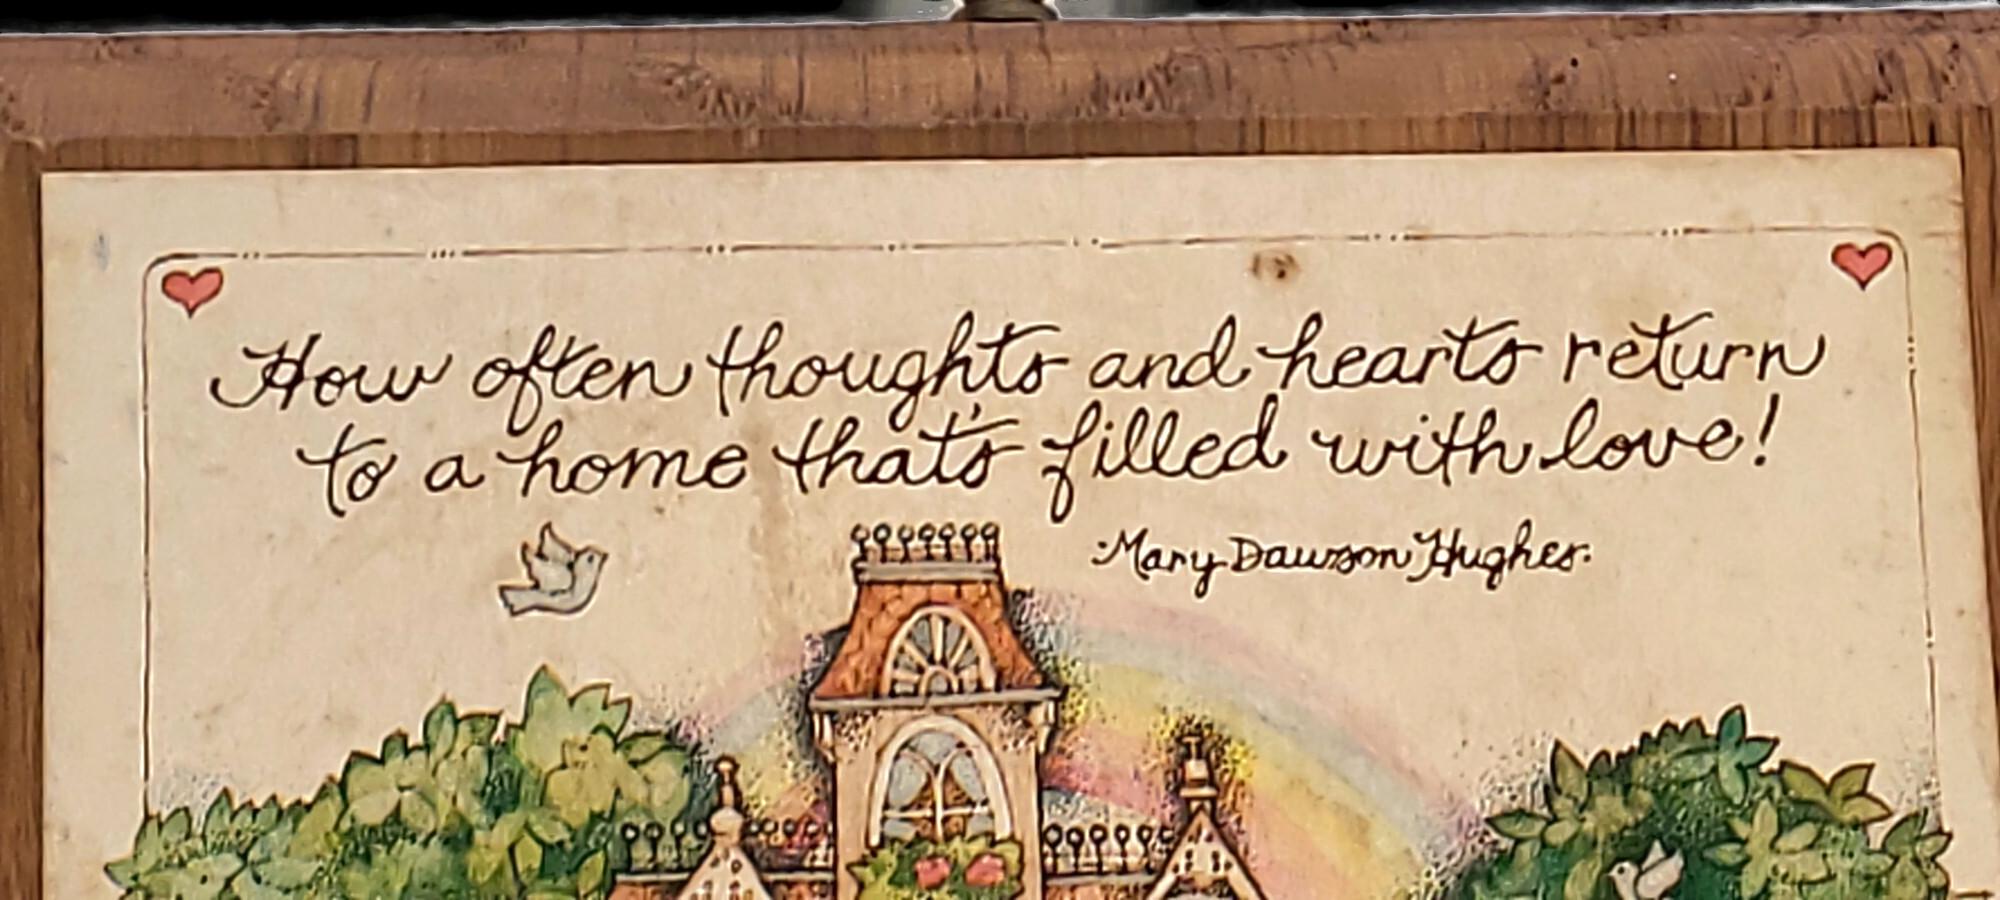 How often thoughts and hearts return
to a home that's filled with love!
·Mary Dawson Hughes·